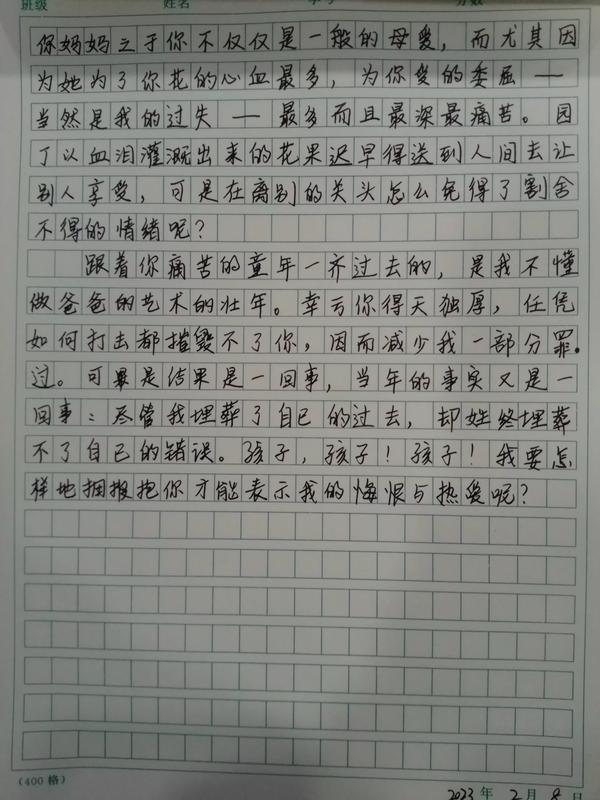 班级 姓名 学号 分数
你妈妈之于你不仅仅是一般的母爱，而尤其因
为她为了你花的心血最多，为你受的委屈——
当然是我的过失——最多而且最深最痛苦。园
丁以血泪灌溉出来的花果迟早得送到人间去让
别人享受，可是在离别的关头怎么免得了割舍
不得的情绪呢？
跟着你痛苦的童年一齐过去的，是我不懂
做爸爸的艺术的壮年。幸亏你得天独厚，任凭
如何打击都摧毁不了你，因而减少我一部分罪
过。可是结果是一回事，当年的事实又是一
回事：尽管我埋葬了自己的过去，却始终埋葬
不了自己的错误。孩子，孩子！孩子！我要怎
样地拥抱你才能表示我的悔恨与热爱呢？
（400格）
2023年2月8日